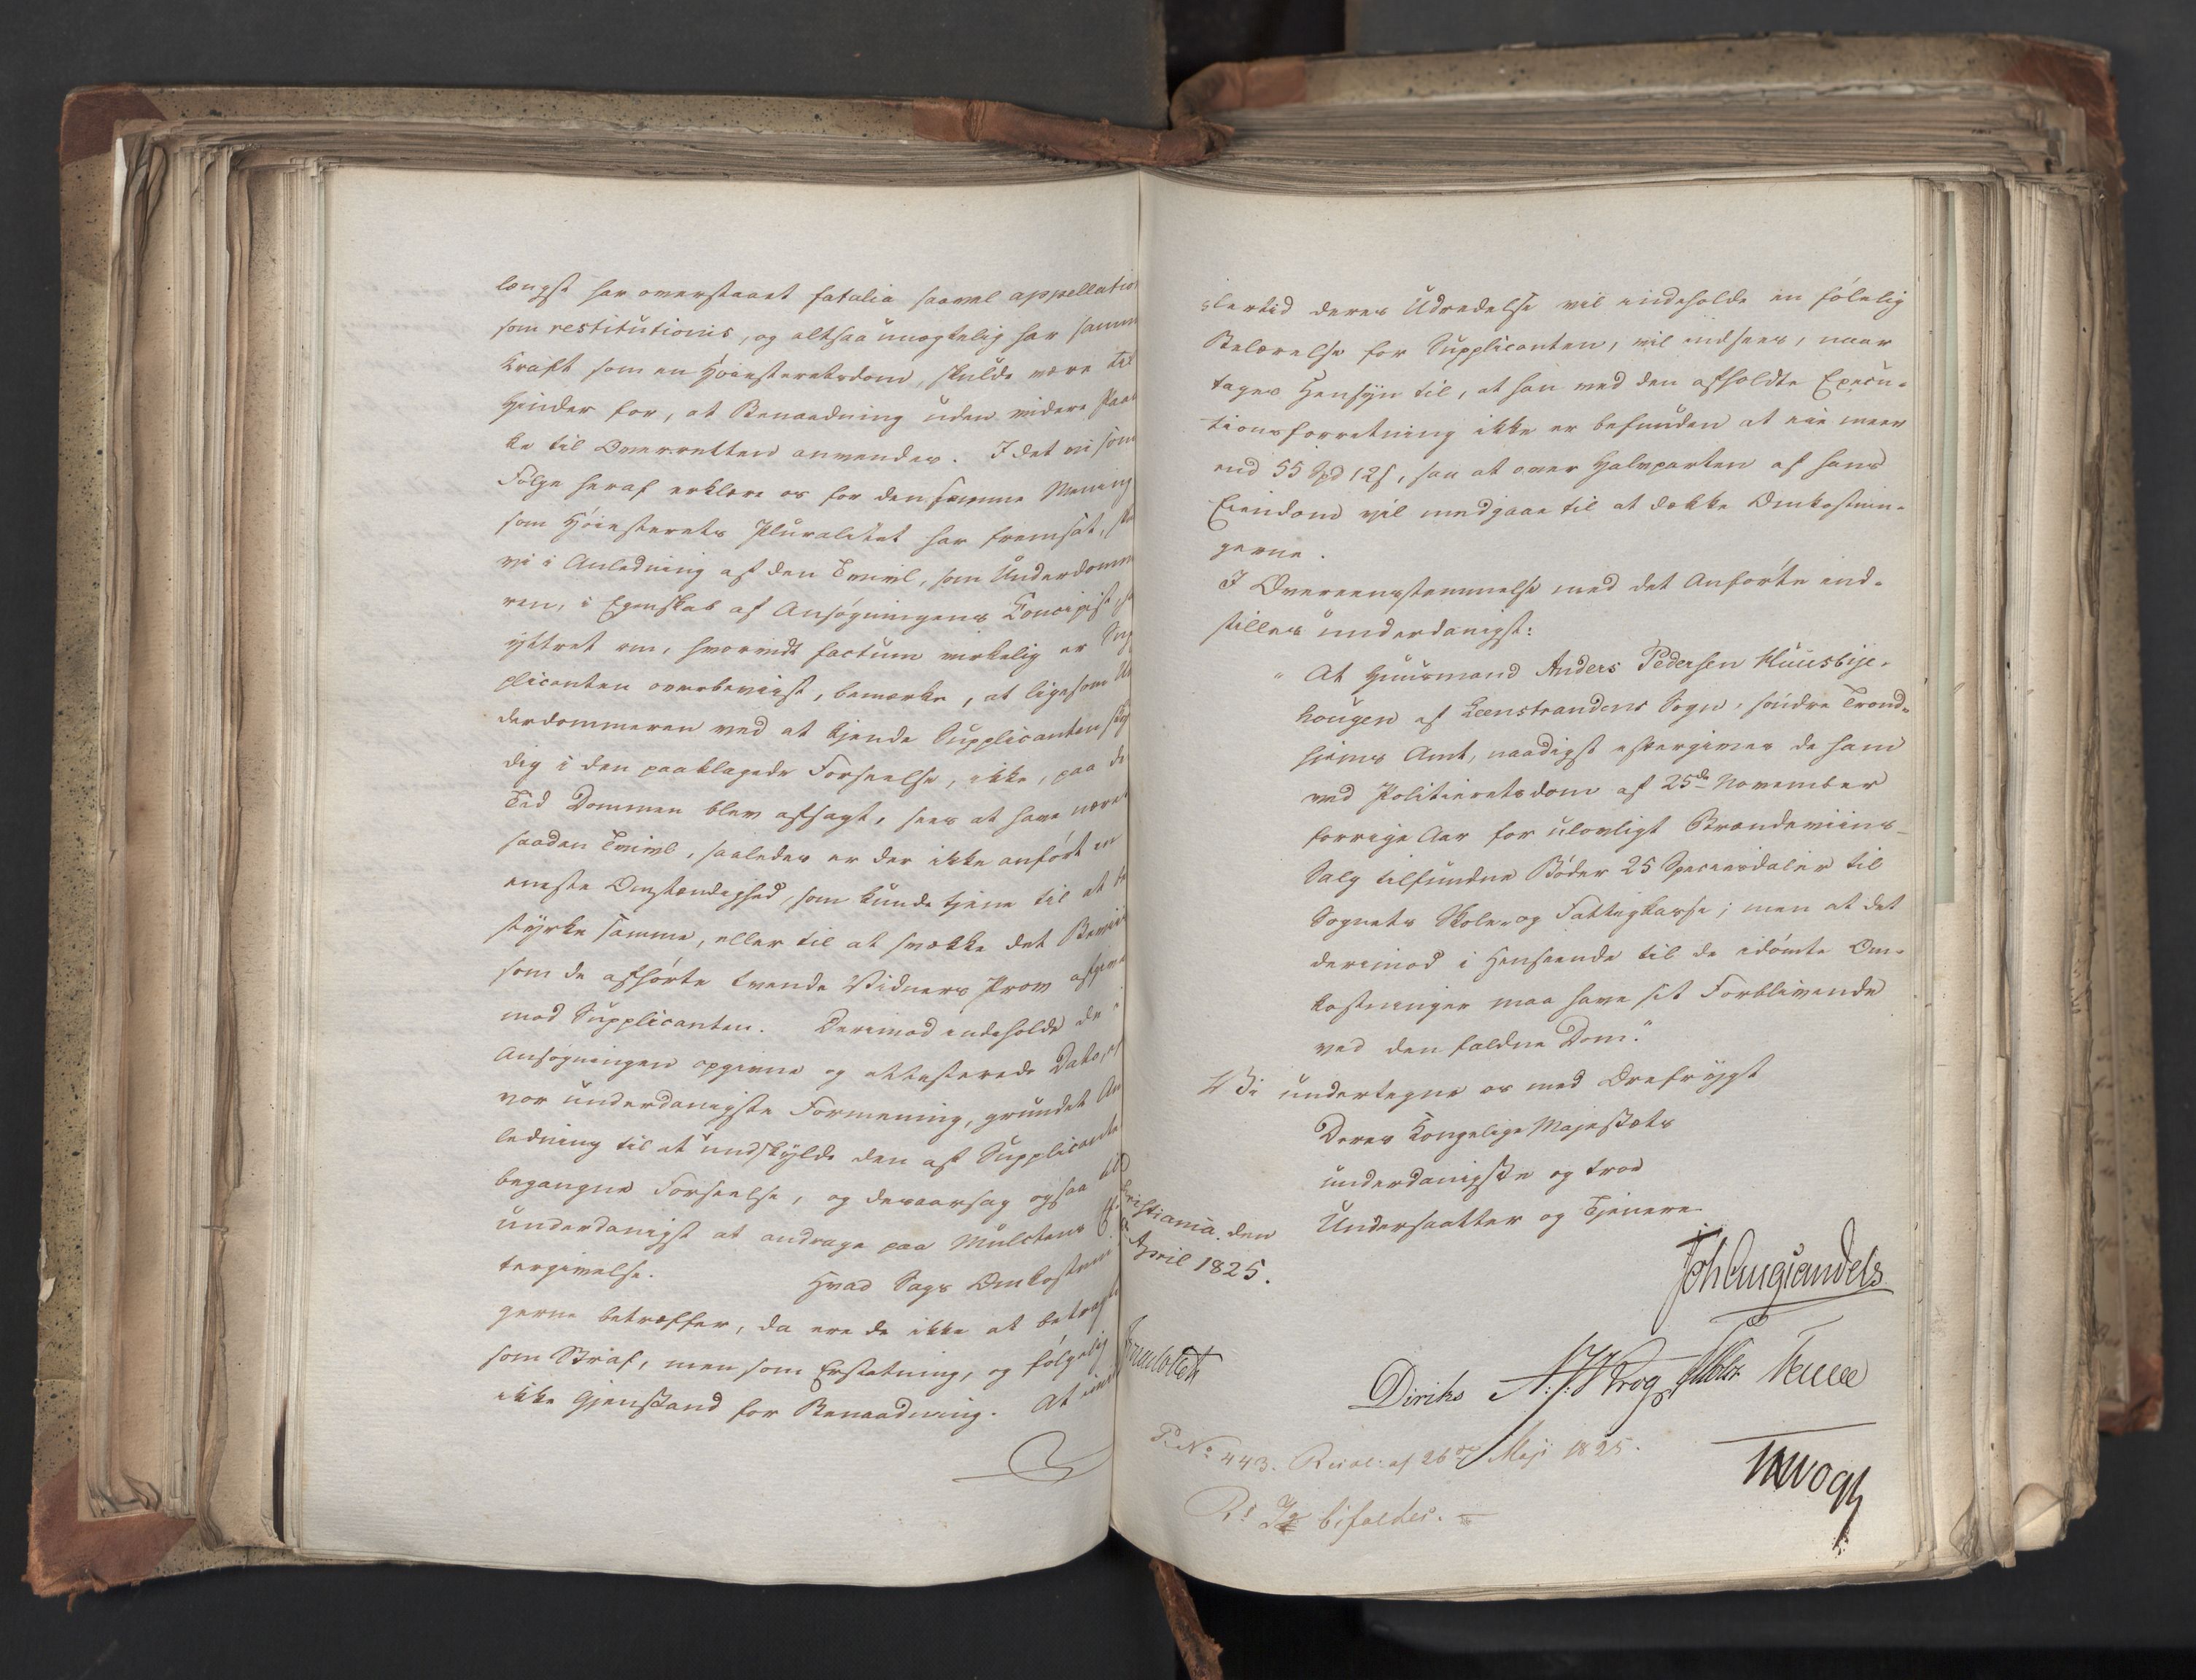 længst har overstaaet fatalia saavel appellatio
som restitutionis, og altsaa unegtelig har samm
Kraft som en Høiesteretsdom, skulde være til
Hinder for, at Benaadning uden videre Paa
ke til Overretten anvendes. I det vi som
Følge heraf erklære os for den samme Mening
som Høiesterets Pluralitet har fremsat,
vi i Anledning af den Tvivl, som Underdomm
ren, i Egenskab af Ansøgningens Concipist,
yttret om, hvorvidt factum virkelig er Sup
plicanten overbeviist, bemærke, at ligesom Un
derdommeren ved at kjende Supplicanten skyl
dig i den paaklagede Forseelse, ikke, paa de
Tid Dommen blev afsagt, sees at have næret
saadan Tvivl, saaledes er der ikke anført en
eneste Omstændighed, som kunde tjene til at be
styrke samme, eller til at svække det Beviis
som de afhørte tvende Vidners Prov afgive
mod Supplicanten. Derimod indeholde de i
Ansøgningen opgivne og attesterede Data, ef
vor underdanigste Formening, grundet An
ledning til at undskylde den af Supplicante
begangne Forseelse, og desaarsag ogsaa til
underdanigst at andrage paa Mulctens Ef
tergivelse. Hvad Sags Omkostnin
gerne betræffer, da ere de ikke at betragte
som Straf, men som Erstatning, og følgelig
ikke Gjenstand for Benaadning. At imid
lertid deres Udredelse vil indeholde en følelig
Belærelse for Supplicanten, vil indsees, naar
tages Hensyn til, at han ved den afholdte Execu-
tionsforretning ikke er befunden at eie meer
end 55 Spd 12 s, saa at over Halvparten af hans
Eiendom vil medgaae til at dække Omkostnin-
gerne.
I Overeensstemmelse med det Anførte ind-
stilles underdanigst:
"At Huusmand Anders Pedersen Huusbije-
hougen af Leenstrandens Sogn, søndre Trond-
hjems Amt, naadigst eftergives de ham
ved Politieretsdom af 25de November
forrige Aar for ulovligt Brændeviins-
Salg tilfundne Bøder 25 Speciesdaler til
Sognets Skole- og Fattigkasse; men at det
derimod i Henseende til de idømte Om-
kostninger maa have sit Forblivende
ved den faldne Dom."
Vi undertegne os med Ærefrygt
Deres Kongelige Majestæts
underdanigste og troe
Undersaatter og Tjenere.
Christiania den
April 1825.
Diriks
P. No 443. Resol: af 26de Maji 1825.
Rs Ig bifaldes.